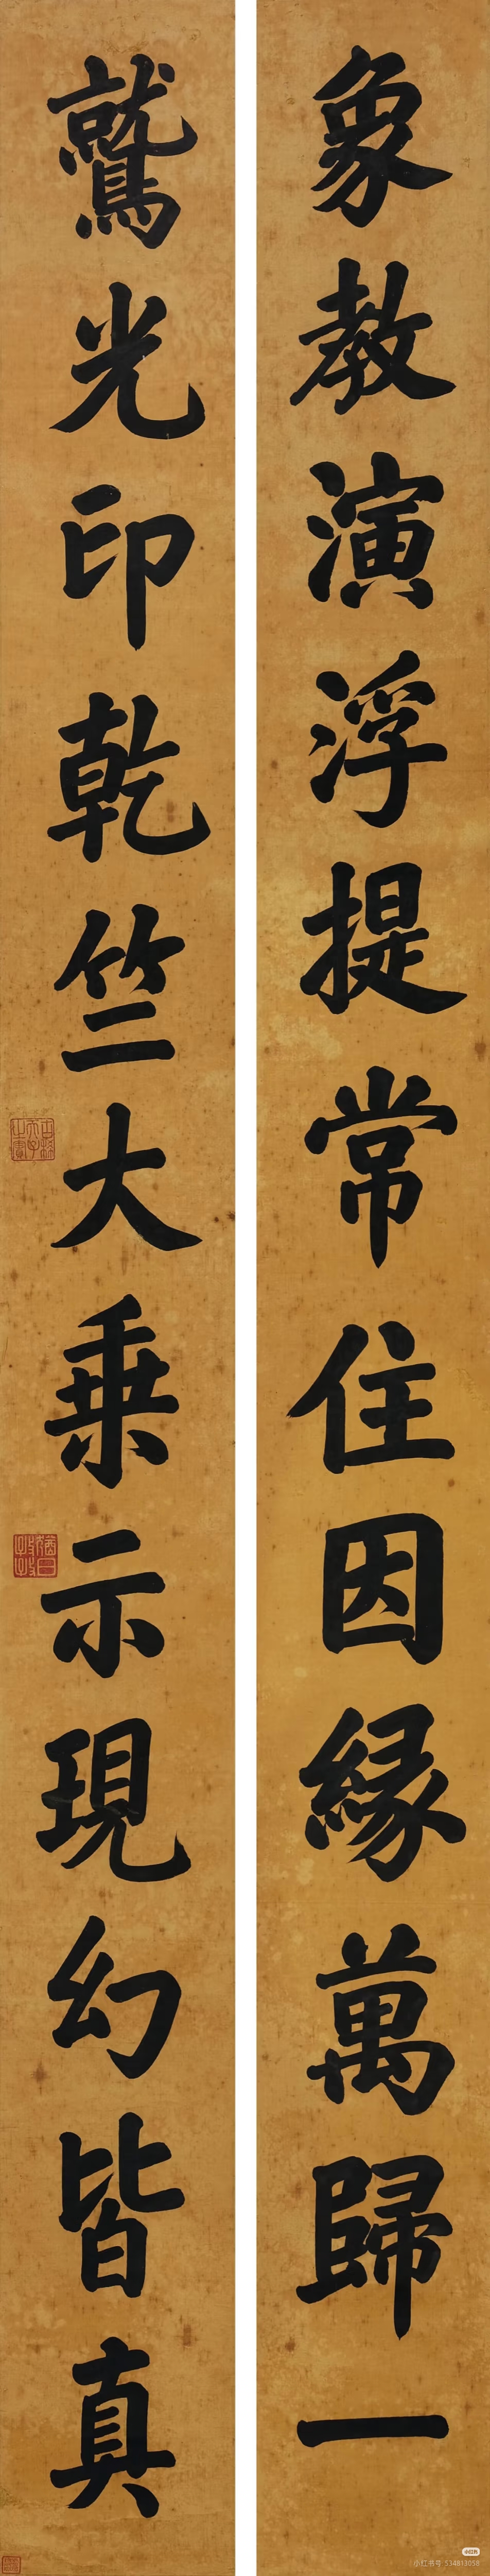 象教演浮提常住因緣萬歸一
鷲光印乾竺大乗示現幻皆真
小红书
小红书号:534813058